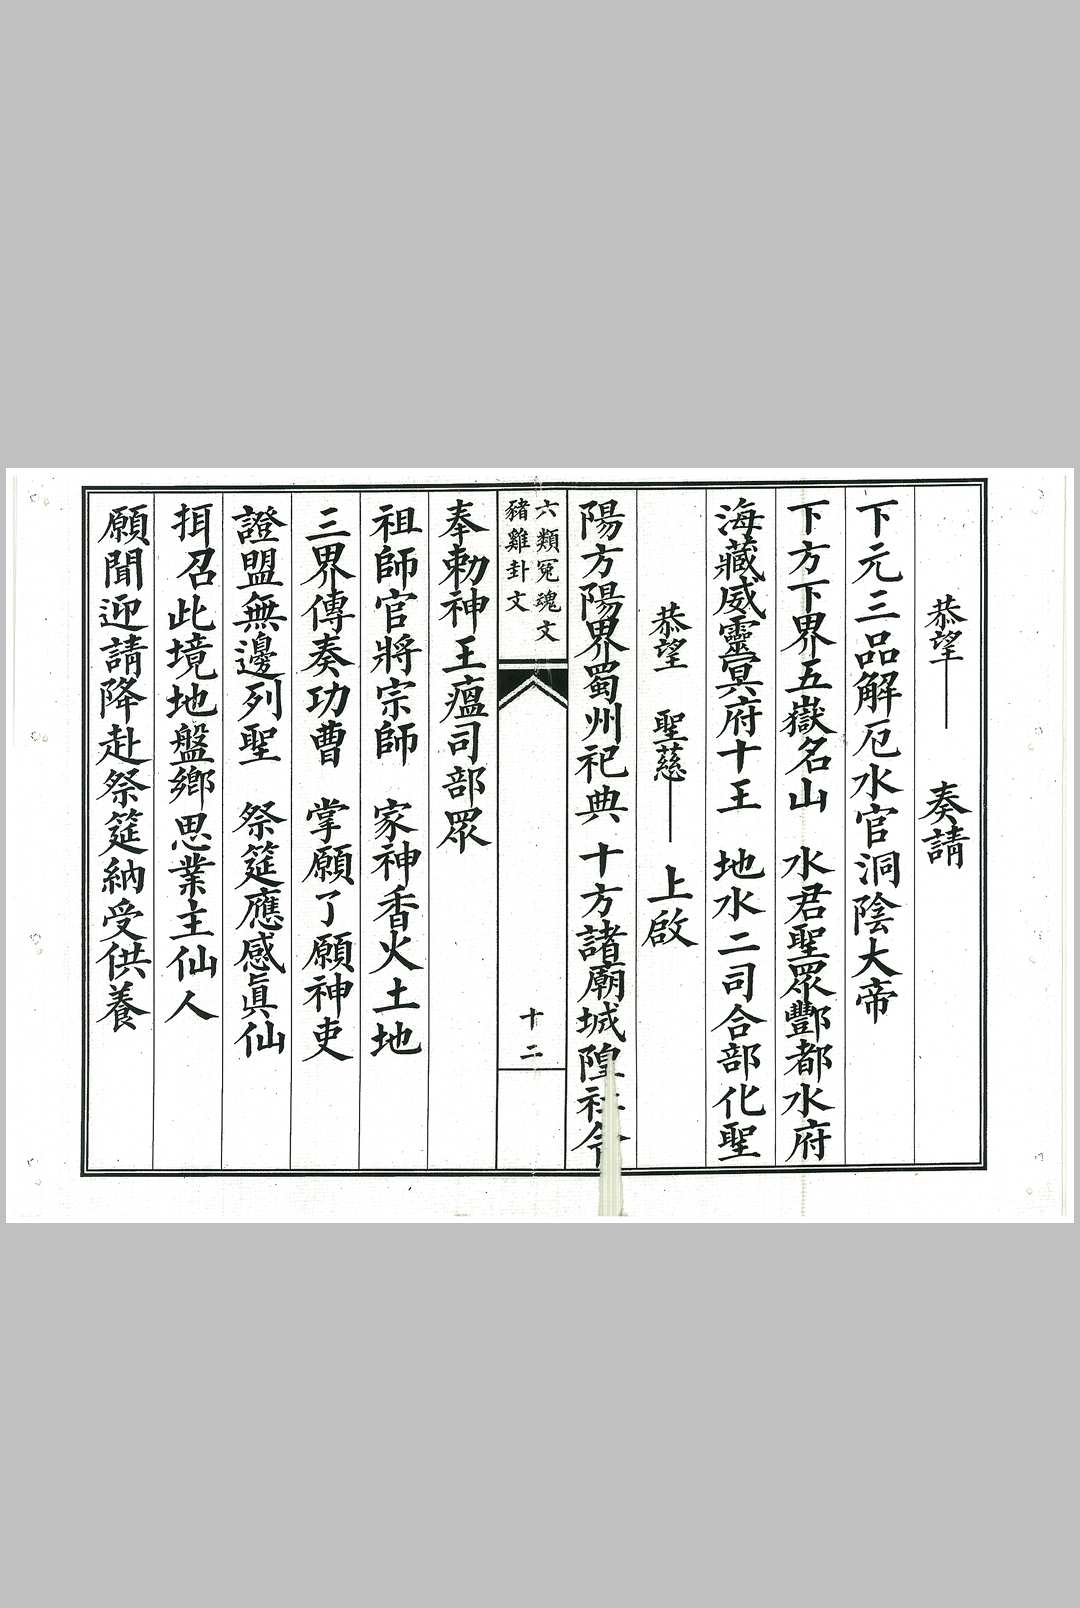 恭望 奏請
下元三品解厄水官洞陰大帝
下方下界五嶽名山 水君聖眾酆都水府
海藏威靈冥府十王 地水二司合部化聖
恭望 聖慈 上啟
陽方陽界蜀州祀典 十方諸廟城隍社令
六類冤魂文
豬雞卦文
十二
奉勅神王瘟司部眾
祖師官將宗師 家神香火土地
三界傳奏功曹 掌願了願神吏
證盟無邊列聖 祭筵應感真仙
拑召此境地盤鄉思業主仙人
願聞迎請降赴祭筵納受供養